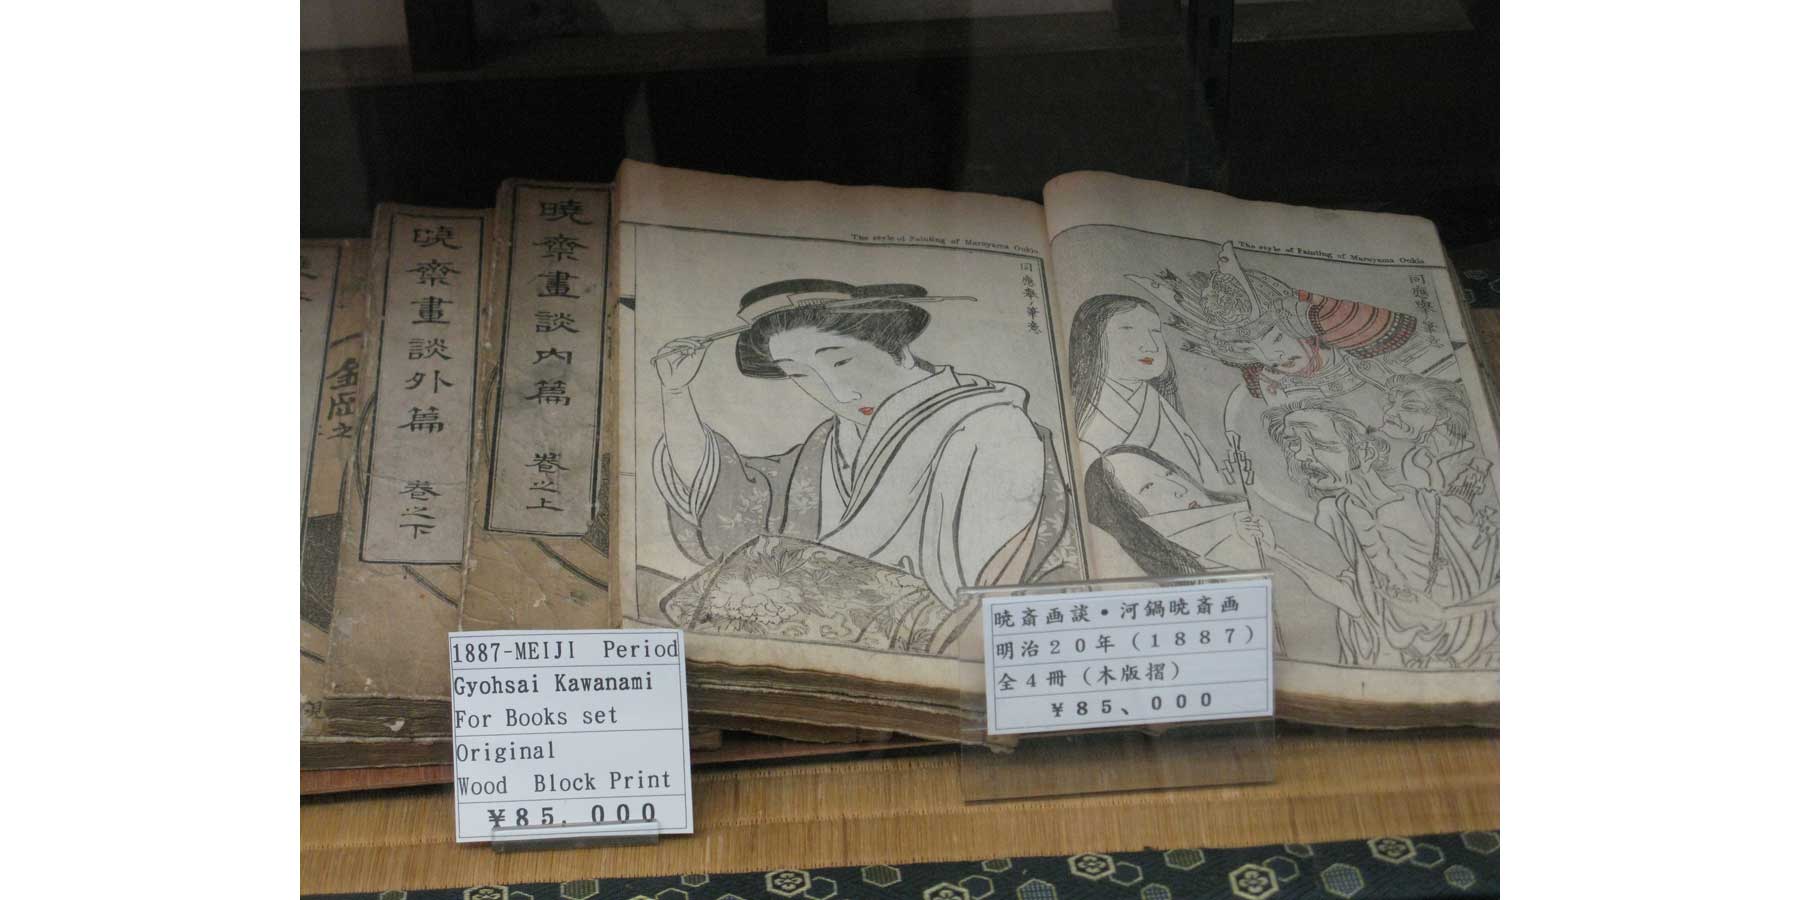 暁齋畫談外篇 巻之下
暁齋畫談内篇 巻之上
The style of Painting of Maruyama Ookio
同應擧ノ筆意
The style of Painting of Maruyama Ookio
同應擧ノ筆意
1887-MEIJI Period
Gyohsai Kawanami
For Books set
Original
Wood Block Print
¥85.000
暁斎画談・河鍋暁斎画
明治20年(1887)
全4冊(木版摺)
¥85、000